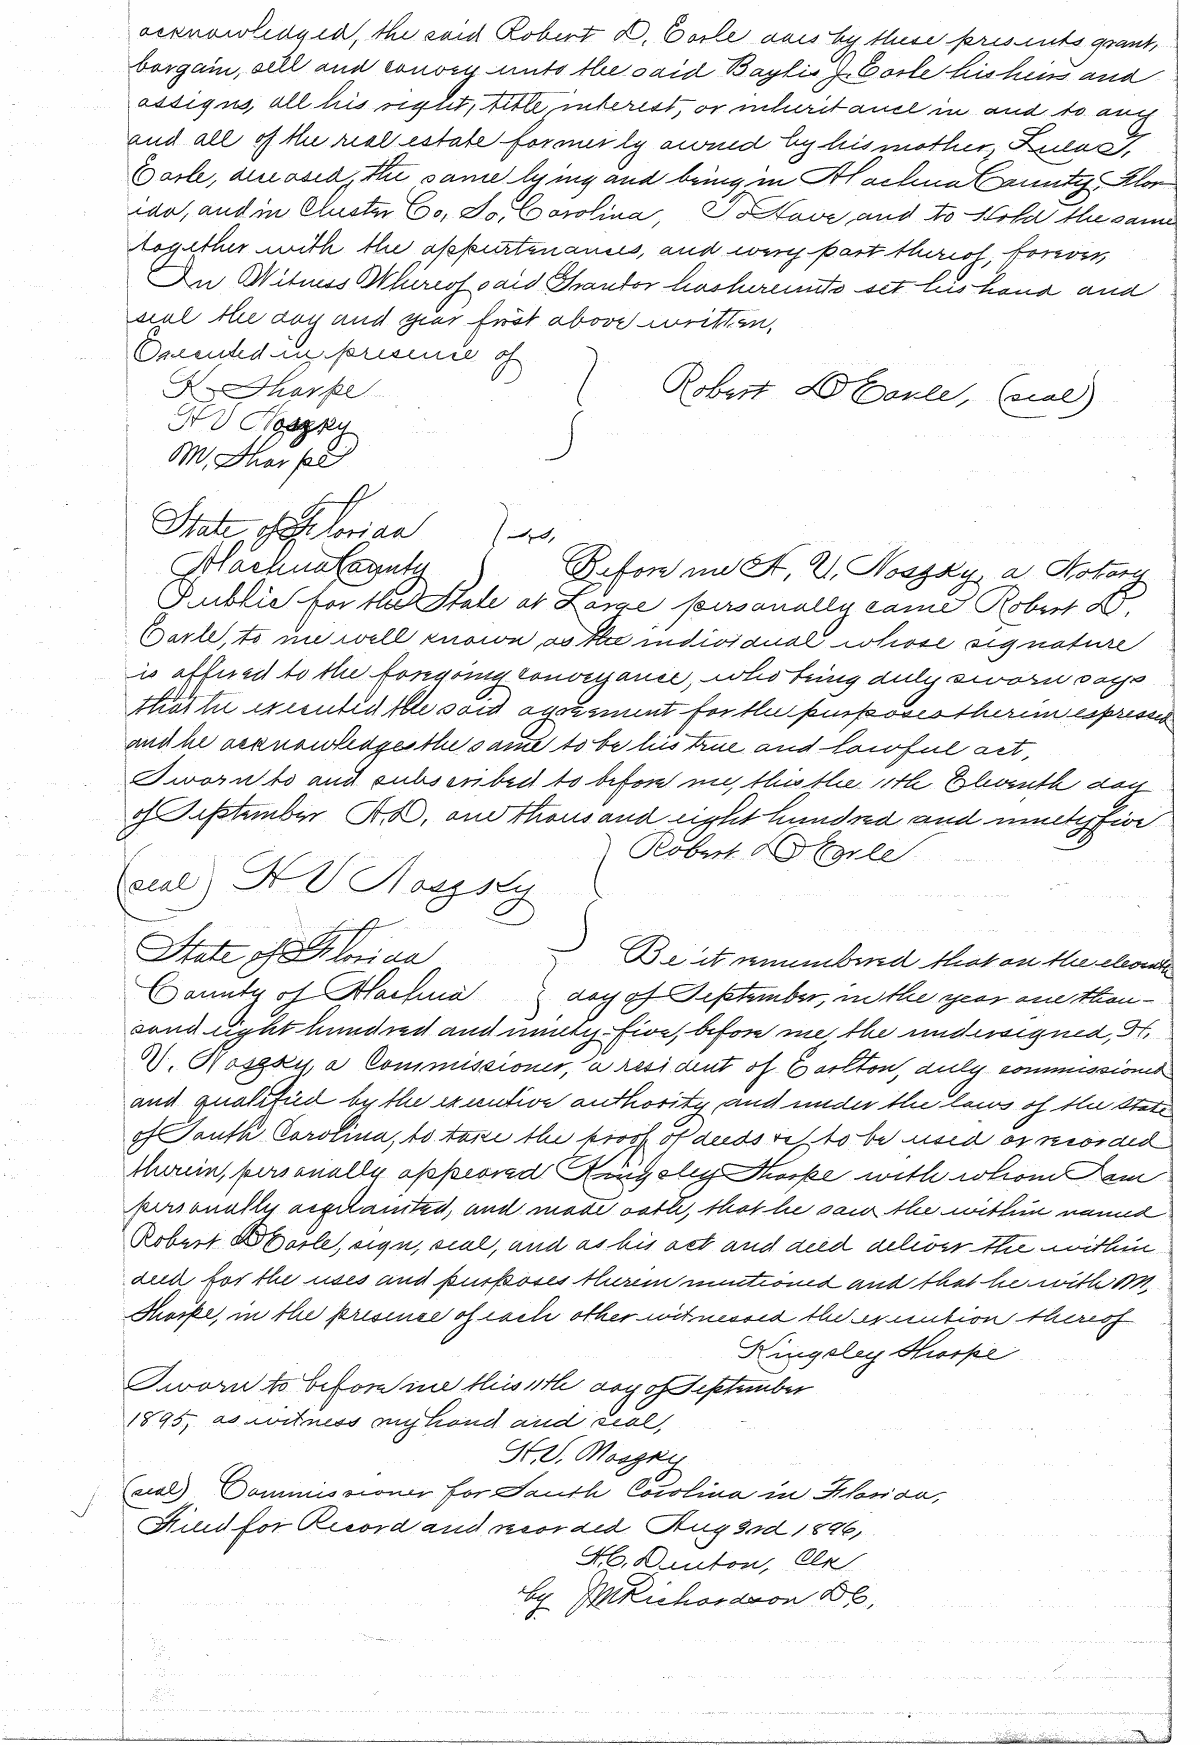 acknowledged, the said Robert D. Earle does by these presents grant,
bargain, sell and convey unto the said Baylis J. Earle his heirs and
assigns, all his right, title, interest, or inheritance in and to any
and all of the real estate formerly owned by his mother,
Earle, deceased, the same lying and being in Alachua County, Flor
ida, and in Chester Co, So, Carolina, To Have and to Hold the same
together with the appurtenances, and every part thereof, forever,
In Witness Whereof said Grantor has hereunto set his hand and
seal the day and year first above written,
Executed in presence of
K. Sharpe
Robert D Earle, (seal)
H V Noszky
M, Sharpe
State of Florida } ss,
Alachua County } Before me H, V, Noszky, a Notary
Public for the State at Large personally came Robert D.
Earle, to me well known as the individual whose signature
is affixed to the foregoing conveyance, who being duly sworn says
that he executed the said agreement for the purposes therein espressed
and he acknowledges the same to be his true and lawful act,
Sworn to and subscribed to before me, this the 11th Eleventh day
of September A.D, one thousand eight hundred and ninety five
Robert D Earle
(seal) H V Noszky
State of Florida } Be it remembered that on the eleventh
County of Alachua } day of September, in the year one thou-
sand eight hundred and ninety-five, before me, the undersigned, H.
V. Noszky, a Commissioner, a resident of Earlton, duly commissioned
and qualified by the executive authority and under the laws of the State
of South Carolina, to take the proof of deeds &c, to be used or recorded
therein, personally appeared Kingsley Sharpe with whom I am
personally acquainted, and made oath, that he saw the within named
Robert D Earle, sign, seal, and as his act and deed deliver the within
deed for the uses and purposes therein mentioned and that he with M,
Sharpe, in the presence of each other witnessed the execution thereof
Kingsley Sharpe
Sworn to before me this 11th day of September
1895, as witness my hand and seal,
H. V. Noszky
(seal) Commissioner for South Carolina in Florida,
Filed for Record and recorded Aug 3rd 1896,
H.C. Denton, Clk
by JM Richardson DC,